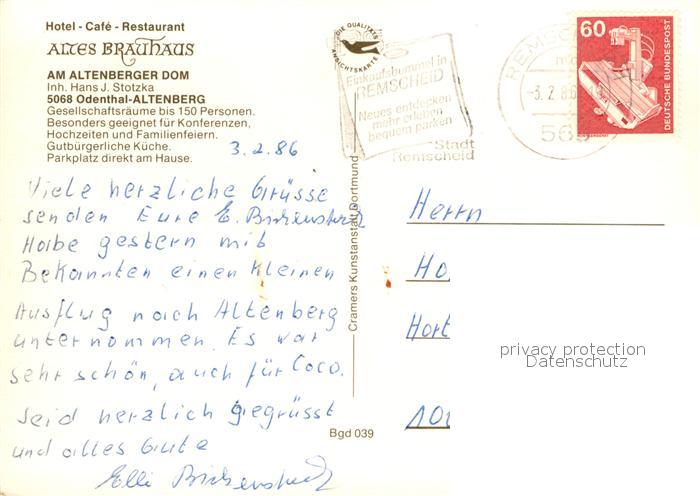 Hotel - Café - Restaurant
ALTES BRAUHAUS
AM ALTENBERGER DOM
Inh. Hans J. Stotzka
5068 Odenthal-ALTENBERG
Gesellschaftsräume bis 150 Personen.
Besonders geeignet für Konferenzen,
Hochzeiten und Familienfeiern.
Gutbürgerliche Küche.
Parkplatz direkt am Hause.
3.2.86
Viele herzliche Grüsse
senden Eure E.
Habe gestern mit
Bekannten einen kleinen
Ausflug nach Altenberg
unternommen. Es war
sehr schön, auch für Coco.
Seid herzlich gegrüsst
und alles Gute
Elli
Cramers Kunstanstalt Dortmund
Bgd 039
DIE QUALITÄTS
ANSICHTSKARTE
Einkaufsbummel in
REMSCHEID
Neues entdecken
mehr erleben
bequem parken
Stadt
Remscheid
REMSC
-3.2.86
60
DEUTSCHE BUNDESPOST
Herrn
Ho
Hort
privacy protection
Datenschutz